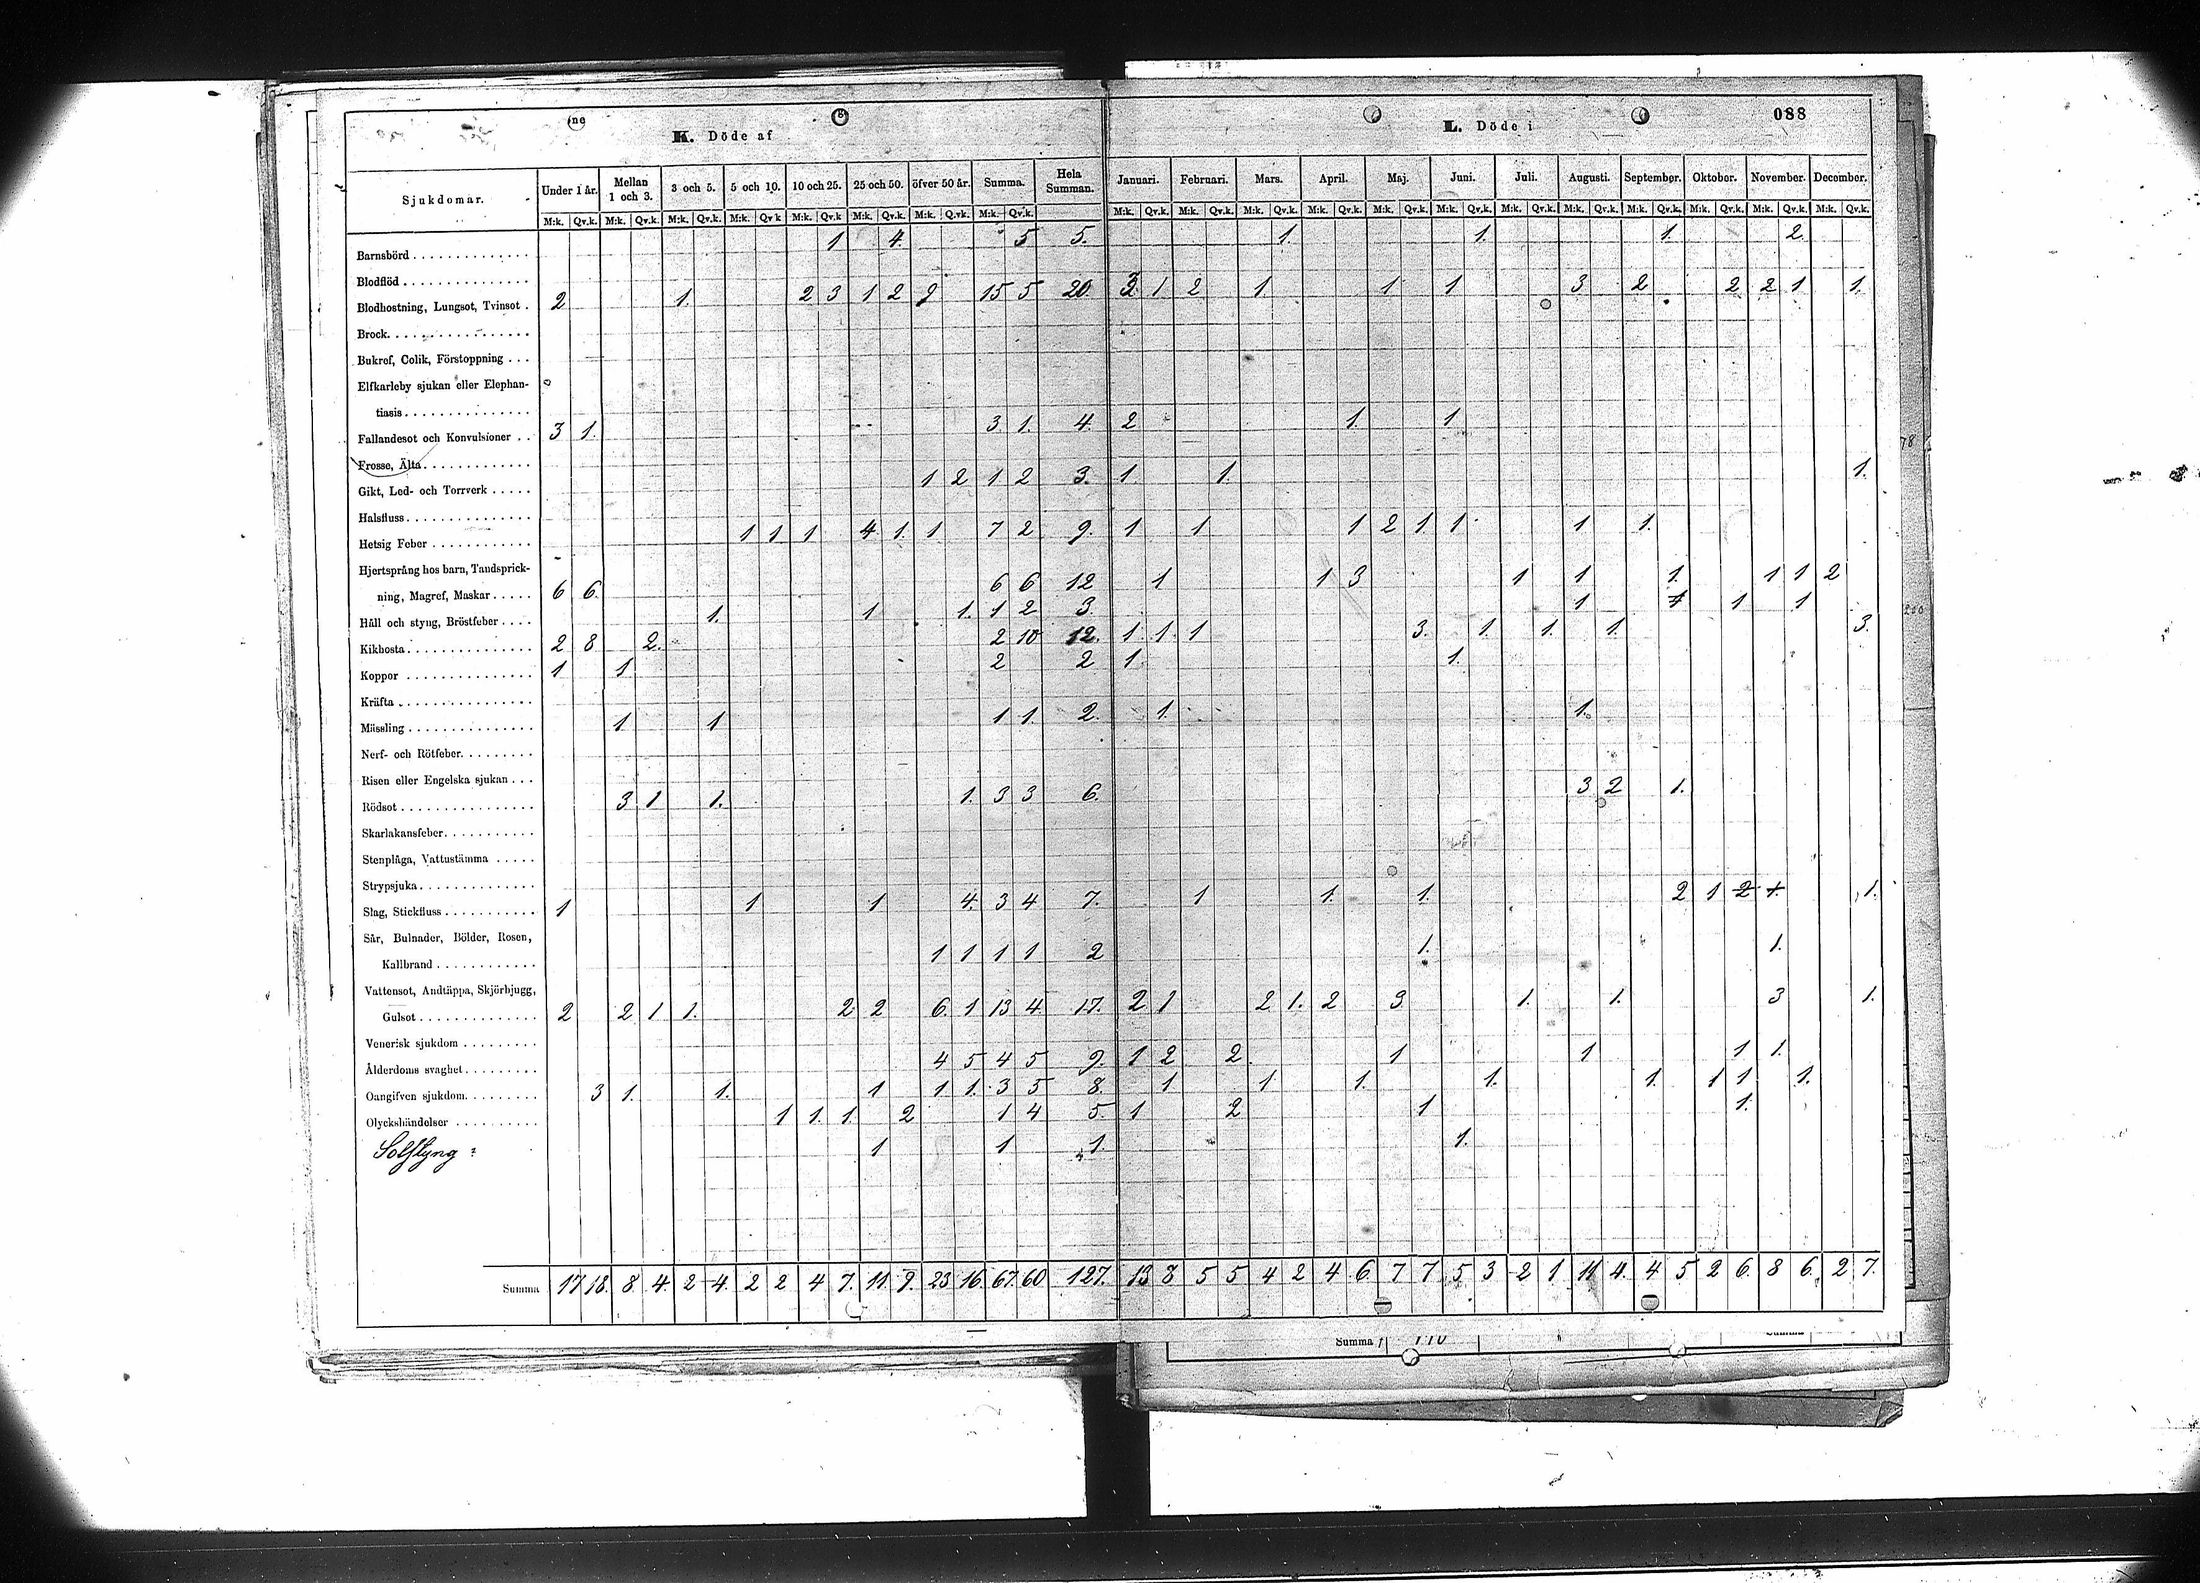 088
K. Döde af L. Döde i
Sjukdomar. Under 1 år. Mellan 1 och 3. 3 och 5. 5 och 10. 10 och 25. 25 och 50. öfver 50 år. Summa. Hela Summan. Januari. Februari. Mars. April. Maj. Juni. Juli. Augusti. September. Oktober. November. December.
M:k. Qv.k. M:k. Qv.k. M:k. Qv.k. M:k. Qv.k M:k. Qv.k M:k. Qv.k. M:k. Qv.k. M:k. Qv.k. M:k. Qv.k. M:k. Qv.k. M:k. Qv.k. M:k. Qv.k. M:k. Qv.k. M:k. Qv.k. M:k. Qv.k. M:k. Qv.k. M:k. Qv.k. M:k. Qv.k. M:k. Qv.k. M:k. Qv.k.
Barnsbörd 1 4. 5 5. 1. 1. 1. 2.
Blodflöd
Blodhostning, Lungsot, Tvinsot 2 1. 2 3 1 2 9 15 5 20. 3 1 2 1. 1 1 3 2 2 2 1 1.
Brock
Bukref, Colik, Förstoppning
Elfkarleby sjukan eller Elephan-
tiasis
Fallandesot och Konvulsioner 3 1. 3 1. 4. 2 1. 1
Frosse, Älta
Gikt, Led- och Torrverk 1 2 1 2 3. 1. 1. 1.
Halsfluss
Hetsig Feber 1 1 1 4 1. 1 7 2 9. 1 1 1 2 1 1 1 1.
Hjertsprång hos barn, Tandsprick-
ning, Magref, Maskar 6 6. 6 6 12 1 1 3 1 1 1. 1 1 2
Håll och styng, Bröstfeber 1. 1 1. 1 2 3. 1 1 1 1
Kikhosta 2 8 2. 2 10 12. 1 1. 1 3. 1. 1. 1. 3.
Koppor 1 1 2 2 1. 1.
Kräfta
Mässling 1 1 1 1. 2. 1. 1.
Nerf- och Rötfeber
Risen eller Engelska sjukan
Rödsot 3 1 1. 1. 3 3 6. 3 2 1.
Skarlakansfeber
Stenplåga, Vattustämma
Strypsjuka
Slag, Stickfluss 1 1 1 4. 3 4 7. 1 1. 1. 2 1 2 1. 1.
Sår, Bulnader, Bölder, Rosen,
Kallbrand 1 1 1 1 2 1. 1.
Vattensot, Andtäppa, Skjörbjugg,
Gulsot 2 2 1 1. 2 2 6. 1 13 4 17. 2 1 2 1. 2 3 1. 1. 3 1.
Venerisk sjukdom
Ålderdoms svaghet 4 5 4 5 9. 1 2 2. 1 1 1 1.
Oangifven sjukdom 3 1. 1. 1 1 1. 3 5 8. 1 1 1. 1. 1. 1 1 1.
Olyckshändelser 1 1. 1. 2 1 4 5. 1 2 1 1.
Solstyng 1 1 1. 1.
Summa 17 18. 8 4. 2 4. 2 2 4 7. 11 9. 23 16. 67. 60 127. 13 8 5 5 4 2 4 6. 7 7 5 3 2 1 11 4. 4 5 2 6. 8 6. 2 7.
Summa